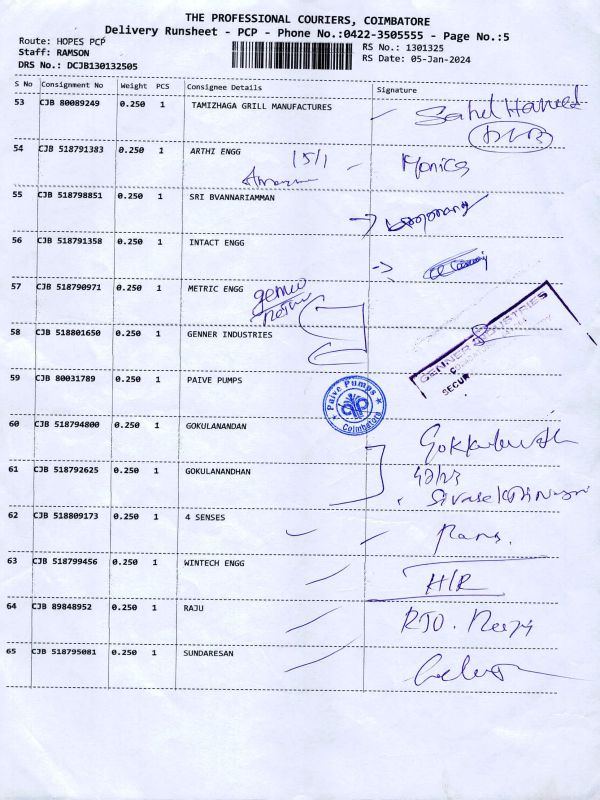 THE PROFESSIONAL COURIERS, COIMBATORE
Delivery Runsheet - PCP - Phone No.:0422-3505555 - Page No.:5
Route: HOPES PCP
Staff: RAMSON
DRS No.: DCJB130132505
RS No.: 1301325
RS Date: 05-Jan-2024
S No Consignment No Weight PCS Consignee Details Signature
53 CJB 80089249 0.250 1 TAMIZHAGA GRILL MANUFACTURES
54 CJB 518791383 0.250 1 ARTHI ENGG 15/1 Monica
55 CJB 518798851 0.250 1 SRI BVANNARIAMMAN
56 CJB 518791358 0.250 1 INTACT ENGG
57 CJB 518790971 0.250 1 METRIC ENGG
58 CJB 518801650 0.250 1 GENNER INDUSTRIES
GENNER INDUSTRIES
59 CJB 80031789 0.250 1 PAIVE PUMPS
Paive Pumps
Coimbatore
60 CJB 518794800 0.250 1 GOKULANANDAN
61 CJB 518792625 0.250 1 GOKULANANDHAN
62 CJB 518809173 0.250 1 4 SENSES
63 CJB 518799456 0.250 1 WINTECH ENGG H/R
64 CJB 89848952 0.250 1 RAJU
65 CJB 518795081 0.250 1 SUNDARESAN